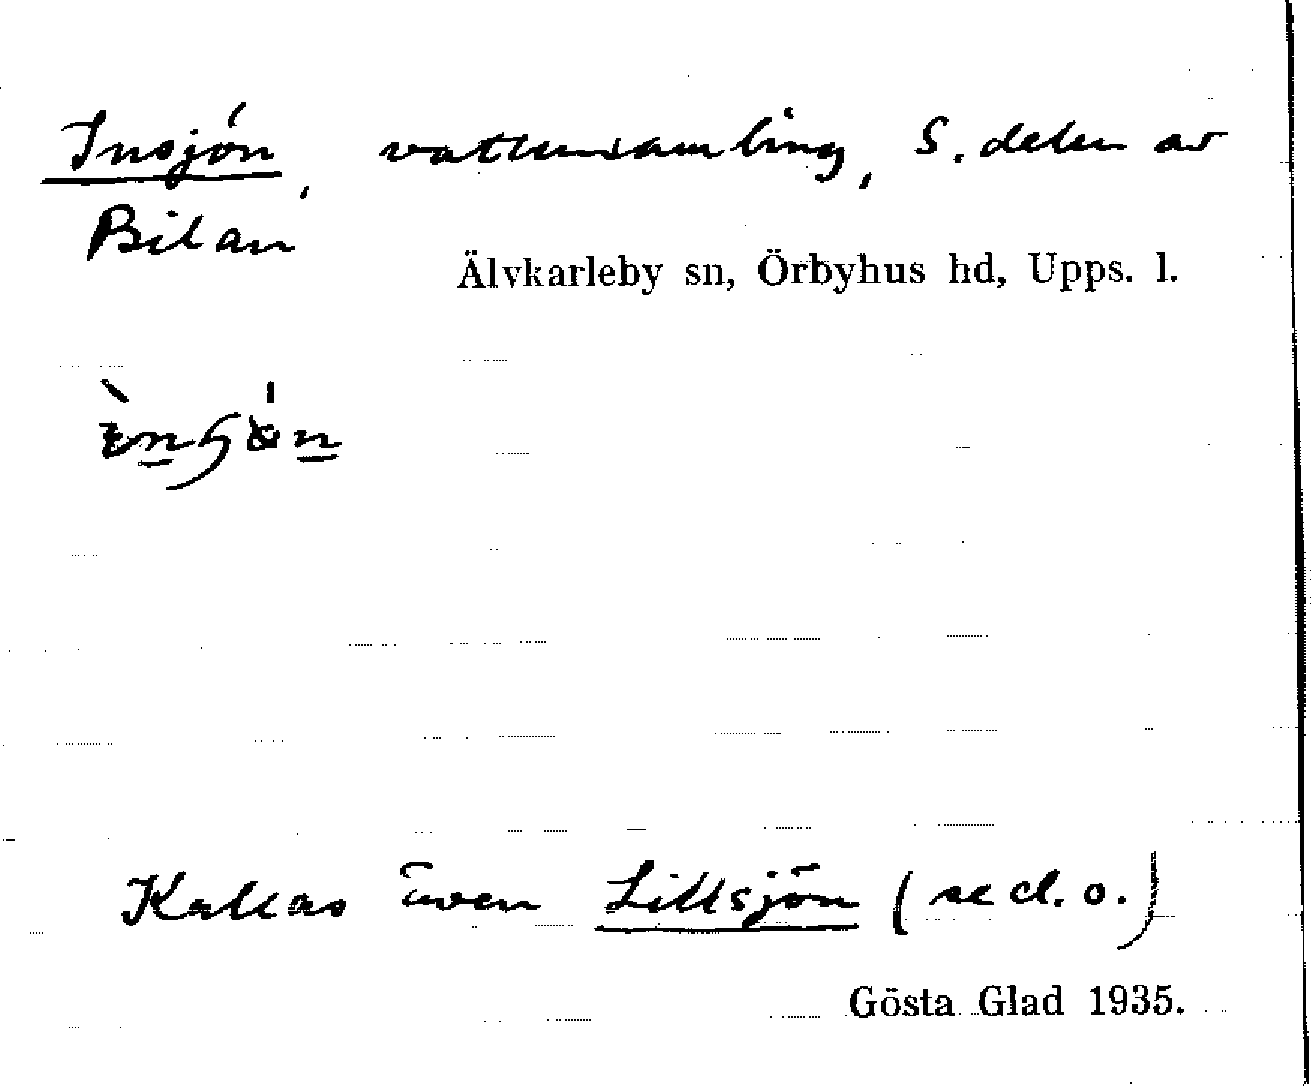 Insjön, vattensamling, S. delen av
Bilan
Älvkarleby sn, Örbyhus hd, Upps. l.
Kallas även Lillsjön (se d. o.)
Gösta Glad 1935.